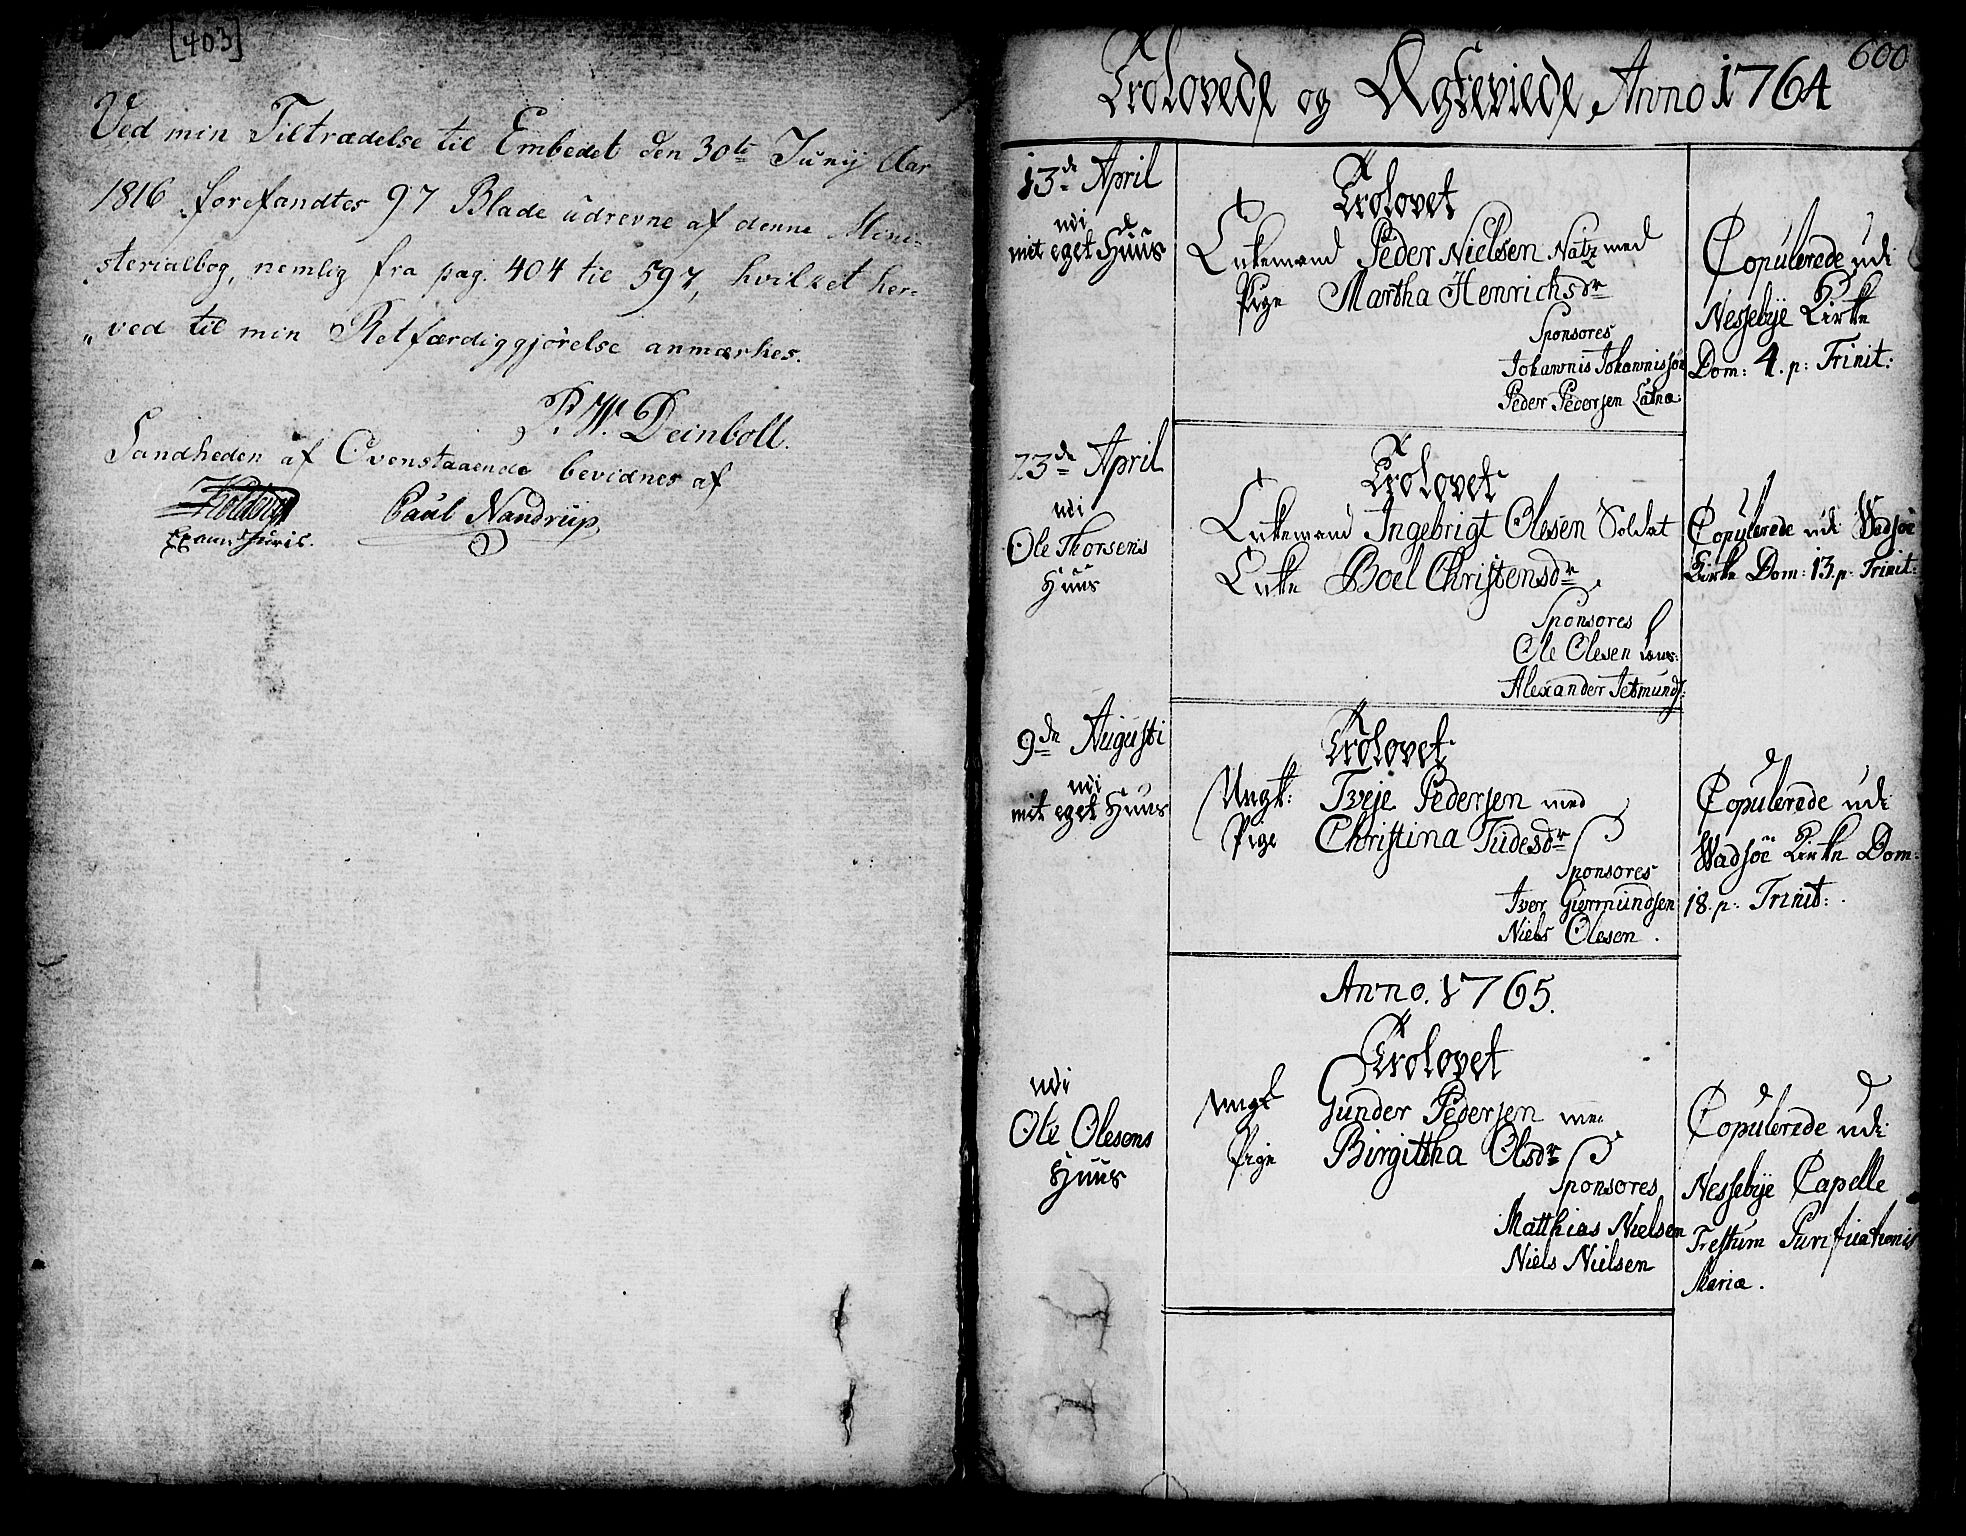 [403]
Ved min Tiltrædelse til Embedet den 30te Junij Aar
1816 forefandtes 97 Blade udrevne af denne Mini-
sterialbog, nemlig fra pag. 404 til 597, hvilket her-
"ved til min Retfærdiggjörelse anmærkes.
P. W. Deinboll.
Sandheden af Ovenstaaende bevidnes af
Holdberg Paul Nandrup
Exam: Juris.
600
Trolovede og Ægteviede Anno 1764
13de April
udi
mit eget Huus
Trolovet
Enkemand Peder Nielsen Natz med
Pige Martha Henrichsdr
Sponsores
Johannis Johannissøn
Peder Pedersen
Copulerede udi
Nessebÿe Kirke
Dom: 4. p: Trinit:
23de April
udi
Ole Thorsens
Huus
Trolovet
Enkemand Ingebrigt Olesen Soldat
Enke Boel Christensdr.
Sponsores
Ole Olesen
Alexander Jetmunds:
Copulerede udi Wadsöe
Kirke Dom: 13. p. Trinit:
9de Augusti
udi
mit eget Huus
Trolovet
Ungk: Tveje Pedersen med
Pige Christina Tudesdr
Sponsores
Iver Giermundsen
Niels Olesen.
Copulerede udi
Wadsöe Kirke Dom:
18. p. Trinit:.
Anno. 1765.
Trolovet
udi
Ole Olesens
Huus
Ungk Gunder Pedersen med
Pige Birgittha Olsdr
Sponsores
Matthias Nielsen
Niels Nielsen
Copulerede udi
Nessebÿe Capelle
Festum Purificationis
Mariæ.